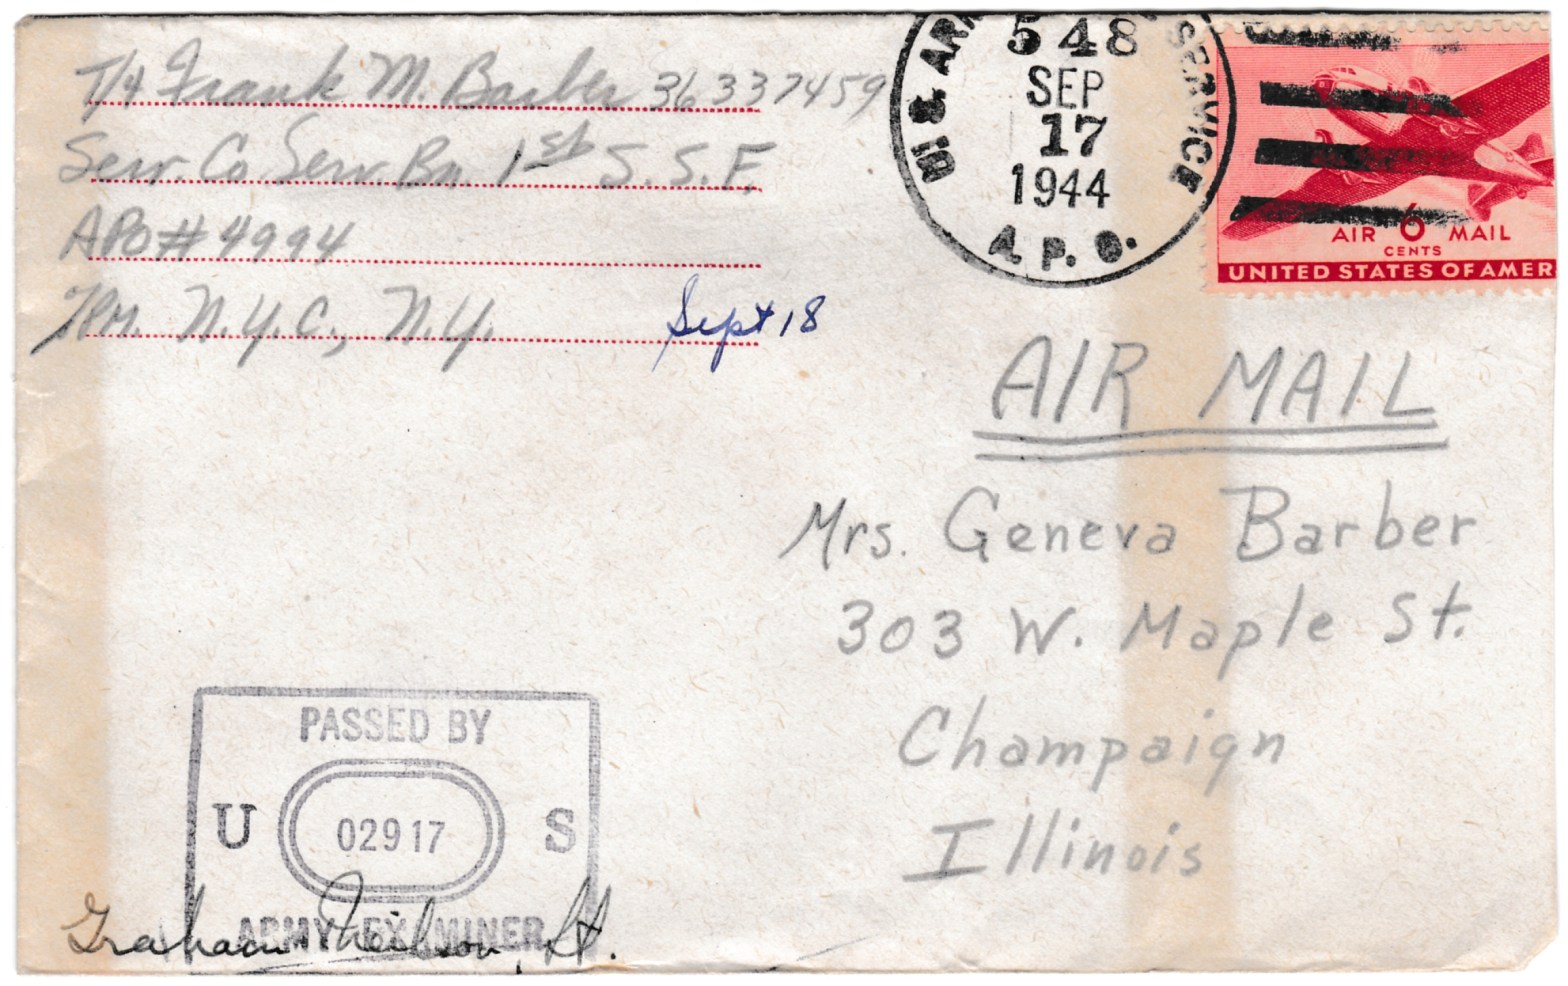 T/4 Frank M. Barber 36337459
Serv. Co Serv. Bn 1st S. S. F.
APO# 4994
℅ P.M. N.Y.C., N.Y.
Sept 18
U. S. ARM SERVICE
548
SEP
17
1944
A. P. O.
AIR 6 MAIL
CENTS
UNITED STATES OF AMER
AIR MAIL
Mrs. Geneva Barber
303 W. Maple St.
Champaign
Illinois
PASSED BY
U 02917 S
ARMY EXAMINER
Graham Neilson, Lt.